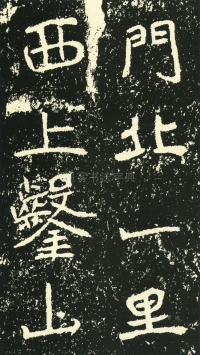 門北一里
西上鑿山